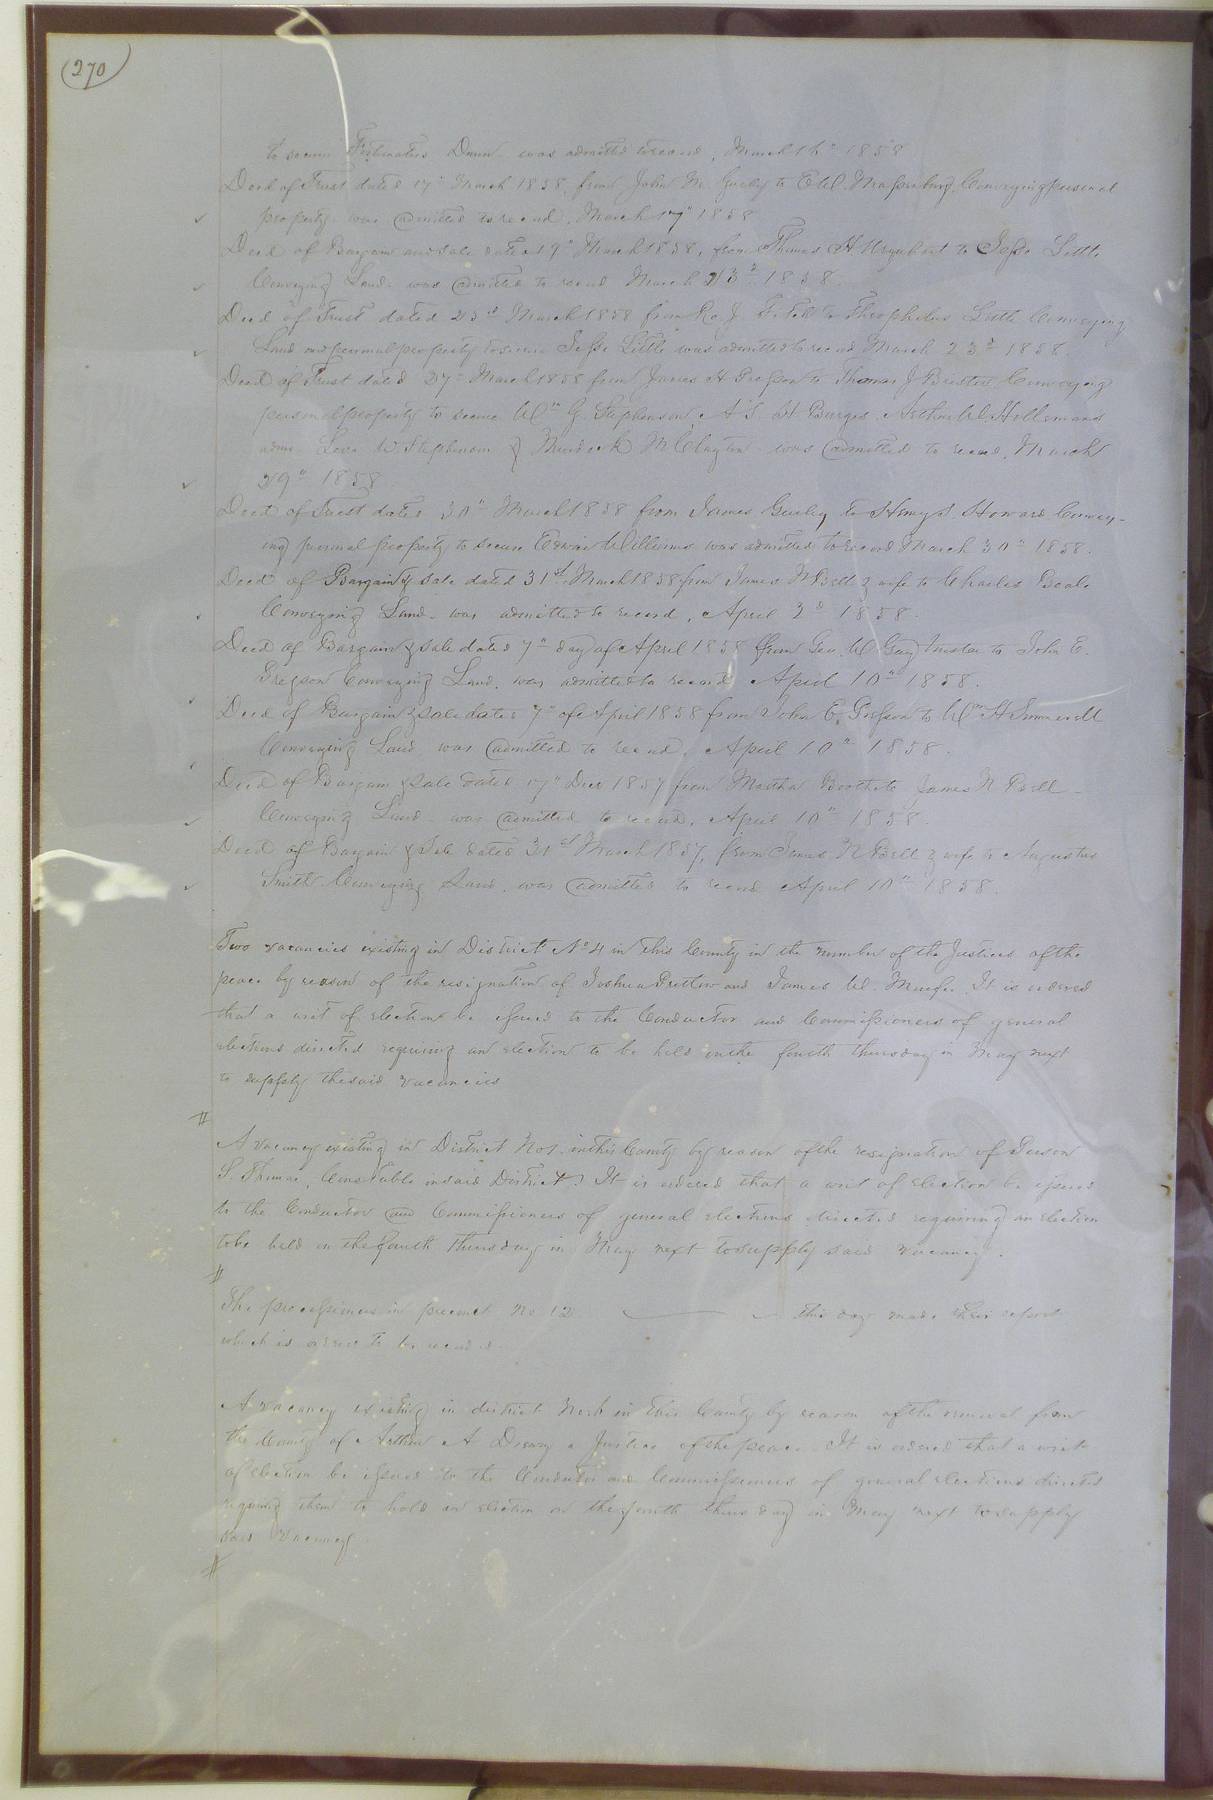 (270)
to secure Dunn was admitted to record, March 16" 1858
Deed of Trust dated 17" March 1858, from John M. Gurley to Conveying personal
property was admitted to record, March 17" 1858
Deed of Bargain and sale dated 9" March 1858, from Thomas H Urquhart to Jesse Little
Conveying Land was admitted to record March 23d 1858.
Deed of Trust dated 23d March 1858 from Ro. J. to Theophilus Little Conveying
Land and personal property to secure Jesse Little was admitted to record March 23d 1858.
Deed of Trust dated 27" March 1858 from James H to Thomas J Conveying
personal property to secure Wm G. Stephenson, A. S. H Burges, Arthur W. Holleman
admr W. Stephenson & was admitted to record, March
29" 1858
Deed of Trust dated 30" March 1858 from James Gurley to Henry S. Howard Convey-
ing personal property to secure Edwin Williams was admitted to record March 30" 1858.
Deed of Bargain & sale dated 31st March 1858 from James N Bell & wife to Charles Beale
Conveying Land was admitted to record, April 2d 1858.
Deed of Bargain & sale dated 7" day of April 1858 from Geo. W Gay to John E.
Conveying Land, was admitted to record April 10" 1858.
Deed of Bargain & sale dated 7" of April 1858 from John E. to Wm H Sommerell
Conveying Land was admitted to record, April 10" 1858.
Deed of Bargain & sale dated 17" Decr 1857 from Martha Booth to James N Bell
Conveying Land was admitted to record, April 10" 1858.
Deed of Bargain & Sale dated 31st March 1857, from James N Bell & wife to Augustus
Smith Conveying Land, was admitted to record April 10" 1858.
Two vacancies existing in District No 4 in this County in the number of the Justices of the
peace by reason of the resignation of Joshua Pretlow and James W. It is ordered
that a writ of election be issued to the Conductor and Commissioners of general
elections directed requiring an election to be held on the fourth thursday in May next
to supply the said vacancies
A vacancy existing in District No 1, in this County by reason of the resignation of
S. Thomas, Constable in said District. It is ordered that a writ of election be issued
to the Conductor and Commissioners of general elections directed requiring an election
to be held on the fourth thursday in May next to supply said vacancy.
The processioners in precinct No 12 this day made their report
which is ordered to be recorded
A vacancy existing in district in this County by reason of the removal from
the County of Arthur A. Drewry a Justice of the peace. It is ordered that a writ
of election be issued to the Conductor and Commissioners of general elections directed
requiring them to hold an election on the fourth thursday in May next to supply
said vacancy